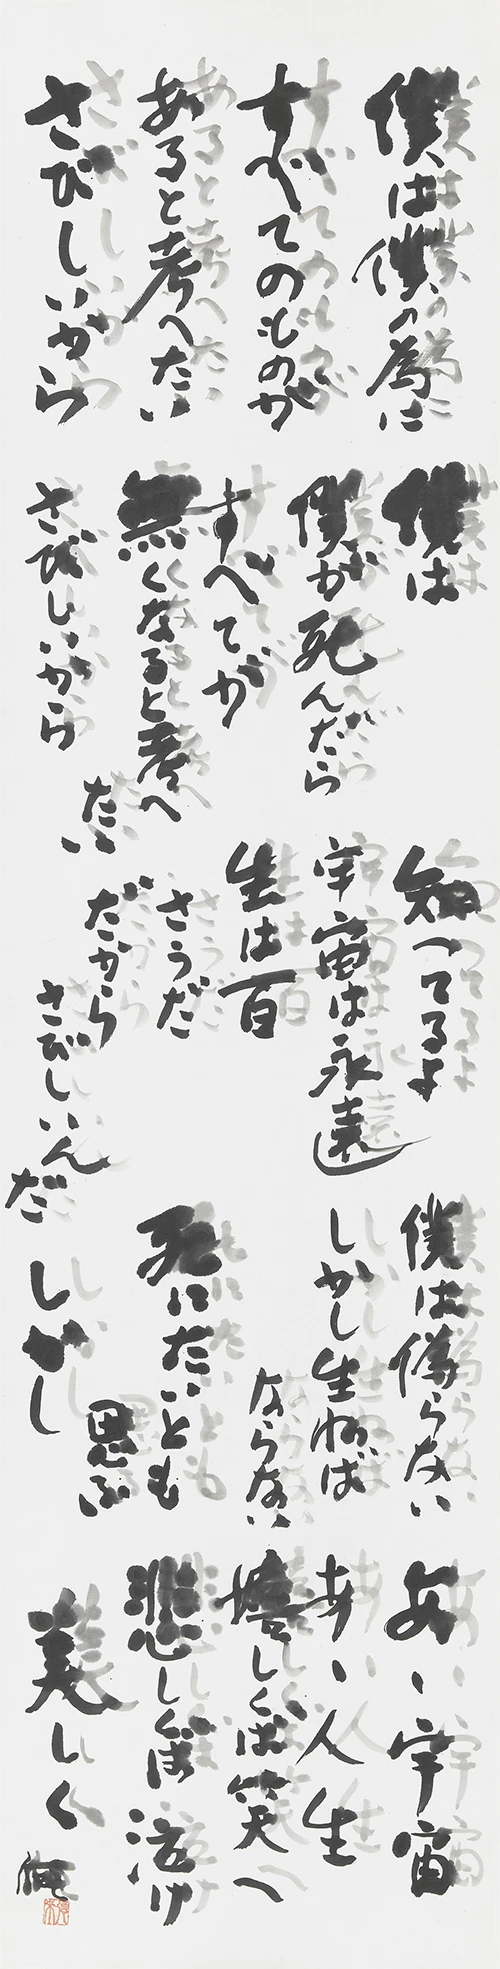 僕は僕の為に
すべてのものが
あると考へたい
さびしいから
僕は
僕が死んだら
すべてが
無くなると考へ
たい
さびしいから
知つてるよ
宇宙は永遠
生は百
さうだ
だから
さびしいんだ
僕は偽らない
しかし生きねば
ならない
死にたいとも
思ふ
しかし
あゝ宇宙
あゝ人生
嬉しくば笑へ
悲しくば泣け
美しく